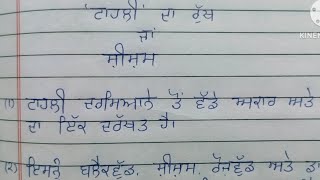 'ਟਾਹਲੀ' ਦਾ ਰੁੱਖ
ਜਾਂ
ਸ਼ੀਸ਼ਮ
(1) ਟਾਹਲੀ ਦਰਮਿਆਨੇ ਤੋਂ ਵੱਡੇ ਅਕਾਰ ਅਤੇ
ਦਾ ਇੱਕ ਦਰੱਖਤ ਹੈ।
(2) ਇਸਨੂੰ ਬਲੈਕਵੁੱਡ, ਸ਼ੀਸ਼ਮ, ਰੋਜ਼ਵੁੱਡ ਅਤੇ
KINEM